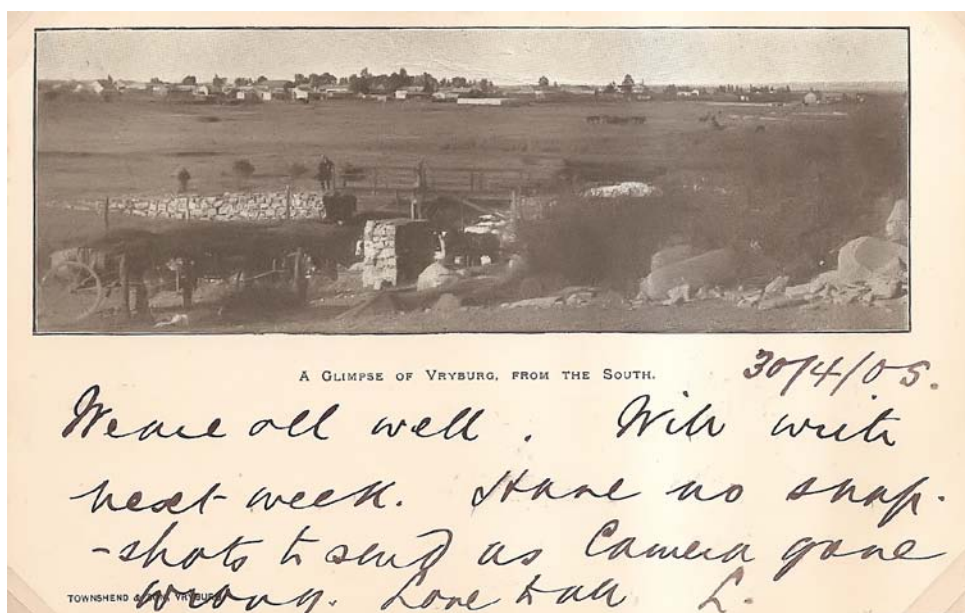 A GLIMPSE OF VRYBURG, FROM THE SOUTH.
30/4/05.
We are all well. Will write
next week. Have no snap-
-shots to send as Camera gone
wrong. Love to all L.
TOWNSHEND & SON, VRYBURG